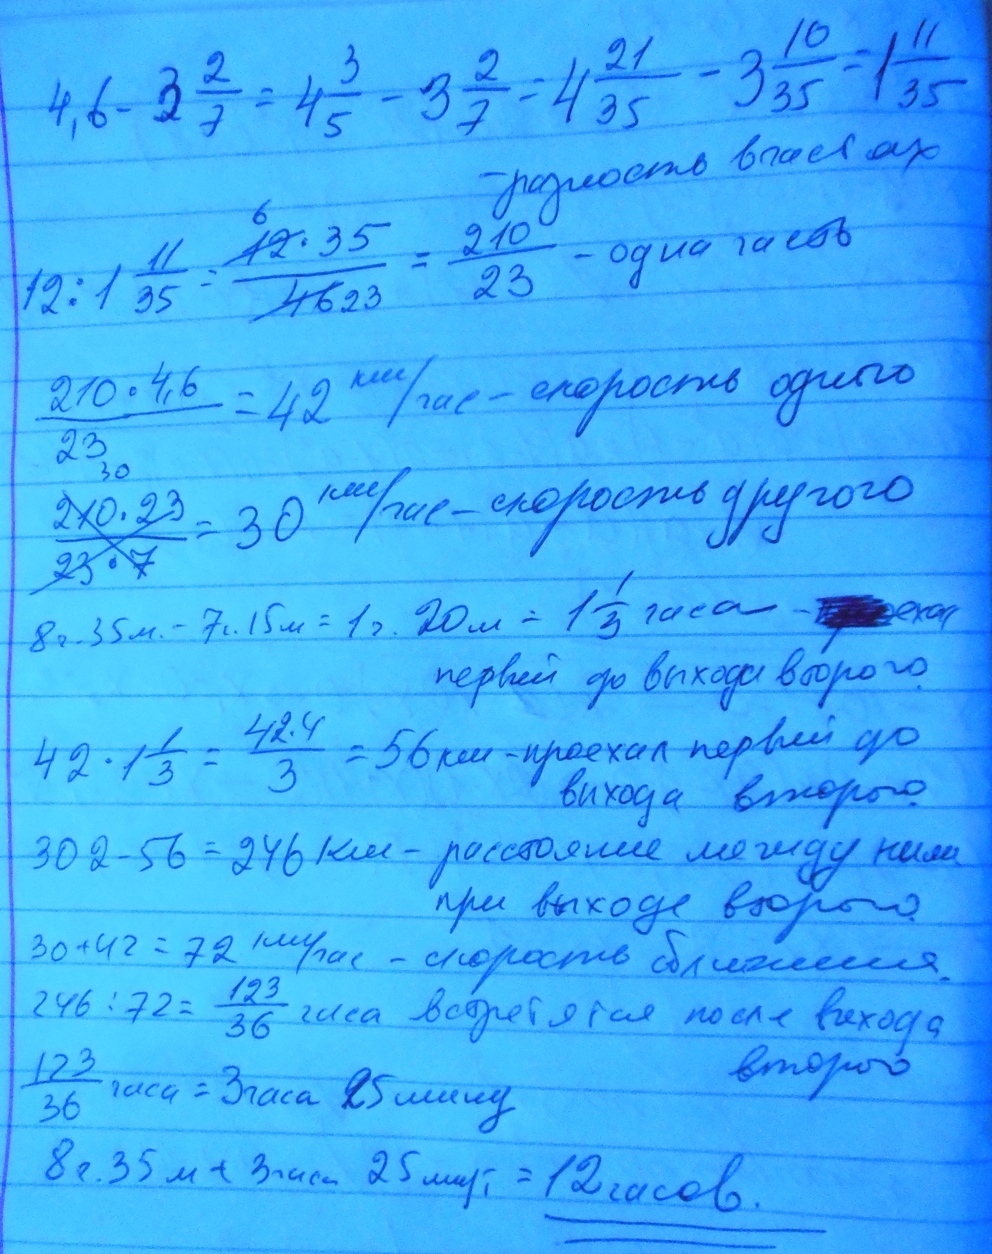 4,6 - 3 2/7 = 4 3/5 - 3 2/7 = 4 21/35 - 3 10/35 = 1 11/35
- разность в частях
12 : 1 11/35 = 12·35/46 = 210/23 - одна часть
210·4,6/23 = 42 км/час - скорость одного
210·23/23·7 = 30 км/час - скорость другого
8ч.35м. - 7ч.15м = 1ч. 20м = 1 1/3 часа -
первый до выхода второго.
42 · 1 1/3 = 42·4/3 = 56 км - проехал первый до
выхода второго.
302 - 56 = 246 км - расстояние между ними
при выходе второго.
30 + 42 = 72 км/час - скорость сближения.
246 : 72 = 123/36 часа встретятся после выхода
второго
123/36 часа = 3 часа 25 мину
8ч.35м + 3 часа 25 мин = 12 часов.